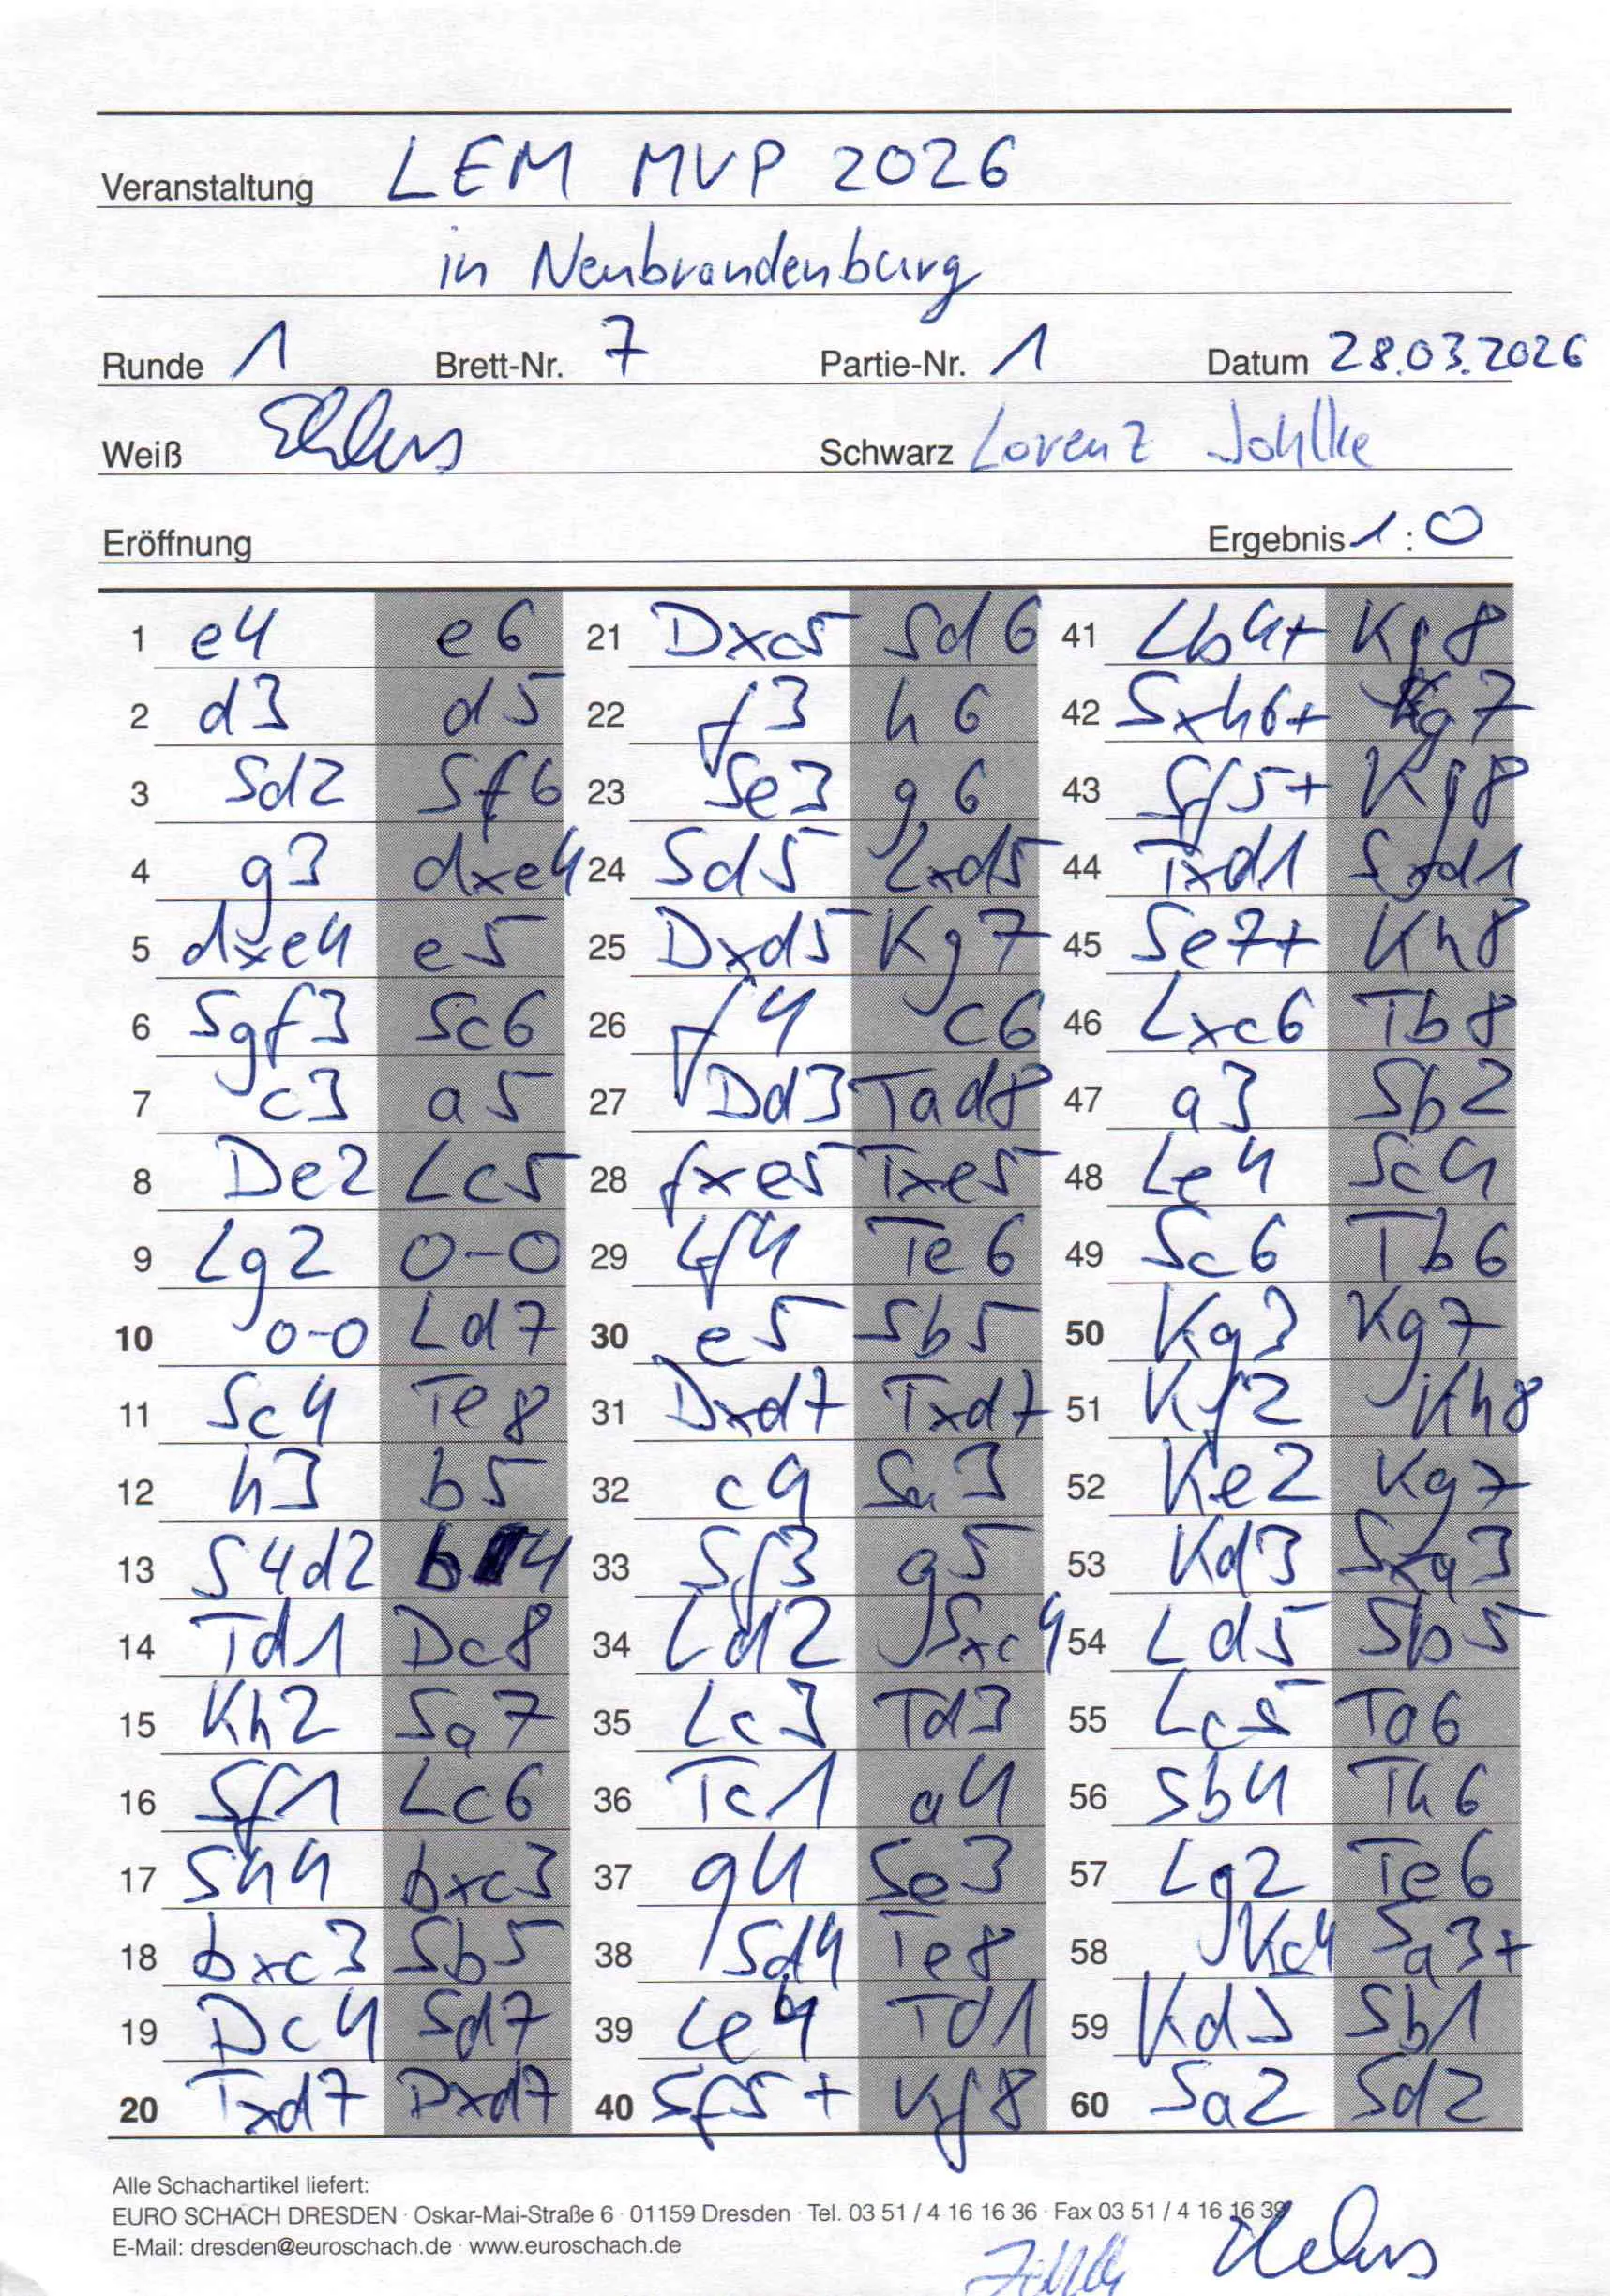 Veranstaltung LEM MVP 2026
in Neubrandenburg
Runde 1 Brett-Nr. 7 Partie-Nr. 1 Datum 28.03.2026
Weiß Ehlers Schwarz Lorenz Johlke
Eröffnung Ergebnis 1:0
1 e4 e6 21 Dxc5 Sd6 41 Lb4+ Kg8
2 d3 d5 22 f3 h6 42 Sxh6+ Kg7
3 Sd2 Sf6 23 Se3 g6 43 Sf5+ Kg8
4 g3 dxe4 24 Sd5 Lxd5 44 Txd1 Sxd1
5 dxe4 e5 25 Dxd5 Kg7 45 Se7+ Kh8
6 Sgf3 Sc6 26 f4 c6 46 Lxc6 Tb8
7 c3 a5 27 Dd3 Tad8 47 a3 Sb2
8 De2 Lc5 28 fxe5 Txe5 48 Le4 Sc4
9 Lg2 0-0 29 Lf4 Te6 49 Sc6 Tb6
10 0-0 Ld7 30 e5 Sb5 50 Kg3 Kg7
11 Sc4 Te8 31 Dxd7 Txd7 51 Kf2 Kh8
12 h3 b5 32 c4 Sa3 52 Ke2 Kg7
13 S4d2 b4 33 Sf3 g5 53 Kd3 Sxa3
14 Td1 Dc8 34 Ld2 Sxc4 54 Ld5 Sb5
15 Kh2 Sa7 35 Lc3 Td3 55 Lc5 Ta6
16 Sf1 Lc6 36 Tc1 a4 56 Sb4 Th6
17 Sh4 bxc3 37 g4 Se3 57 Lg2 Te6
18 bxc3 Sb5 38 Sd4 Te8 58 Kc4 Sa3+
19 Dc4 Sd7 39 Le4 Td1 59 Kd3 Sb1
20 Txd7 Dxd7 40 Sf5+ Kf8 60 Sa2 Sd2
Alle Schachartikel liefert:
EURO SCHACH DRESDEN · Oskar-Mai-Straße 6 · 01159 Dresden · Tel. 03 51 / 4 16 16 36 · Fax 03 51 / 4 16 16 39
E-Mail: dresden@euroschach.de · www.euroschach.de